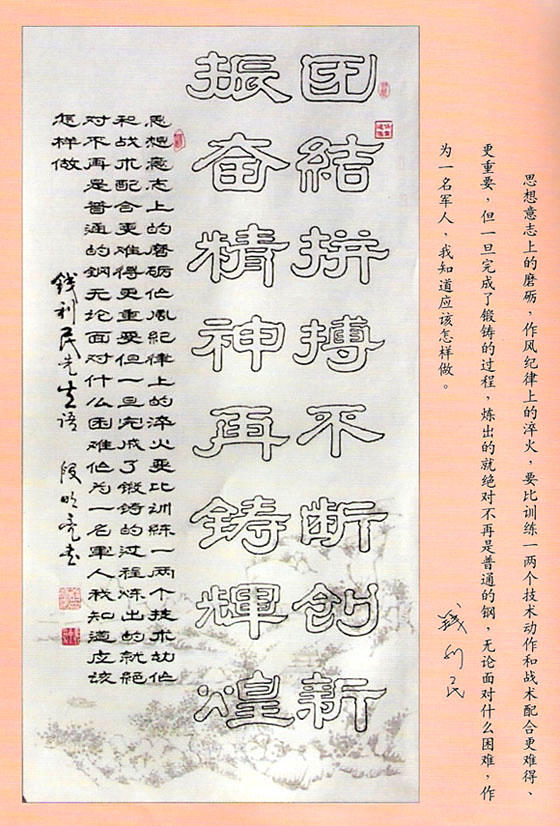 思想意志上的磨砺，作风纪律上的淬火，要比训练一两个技术动作和战术配合更难得、
更重要，但一旦完成了锻铸的过程，炼出的就绝对不再是普通的钢，无论面对什么困难，作
为一名军人，我知道应该怎样做。
钱利民
团結拼搏不断创新
振奋精神再铸輝煌
思想意志上的磨砺作風紀律上的淬火要比训练一两个技术动作
和战术配合更难得更重要但一旦完成了锻铸的过程炼出的就絕
对不再是普通的钢无论面对什么困难作为一名軍人我知道应该
怎样做
錢利民先生语 段明亮书